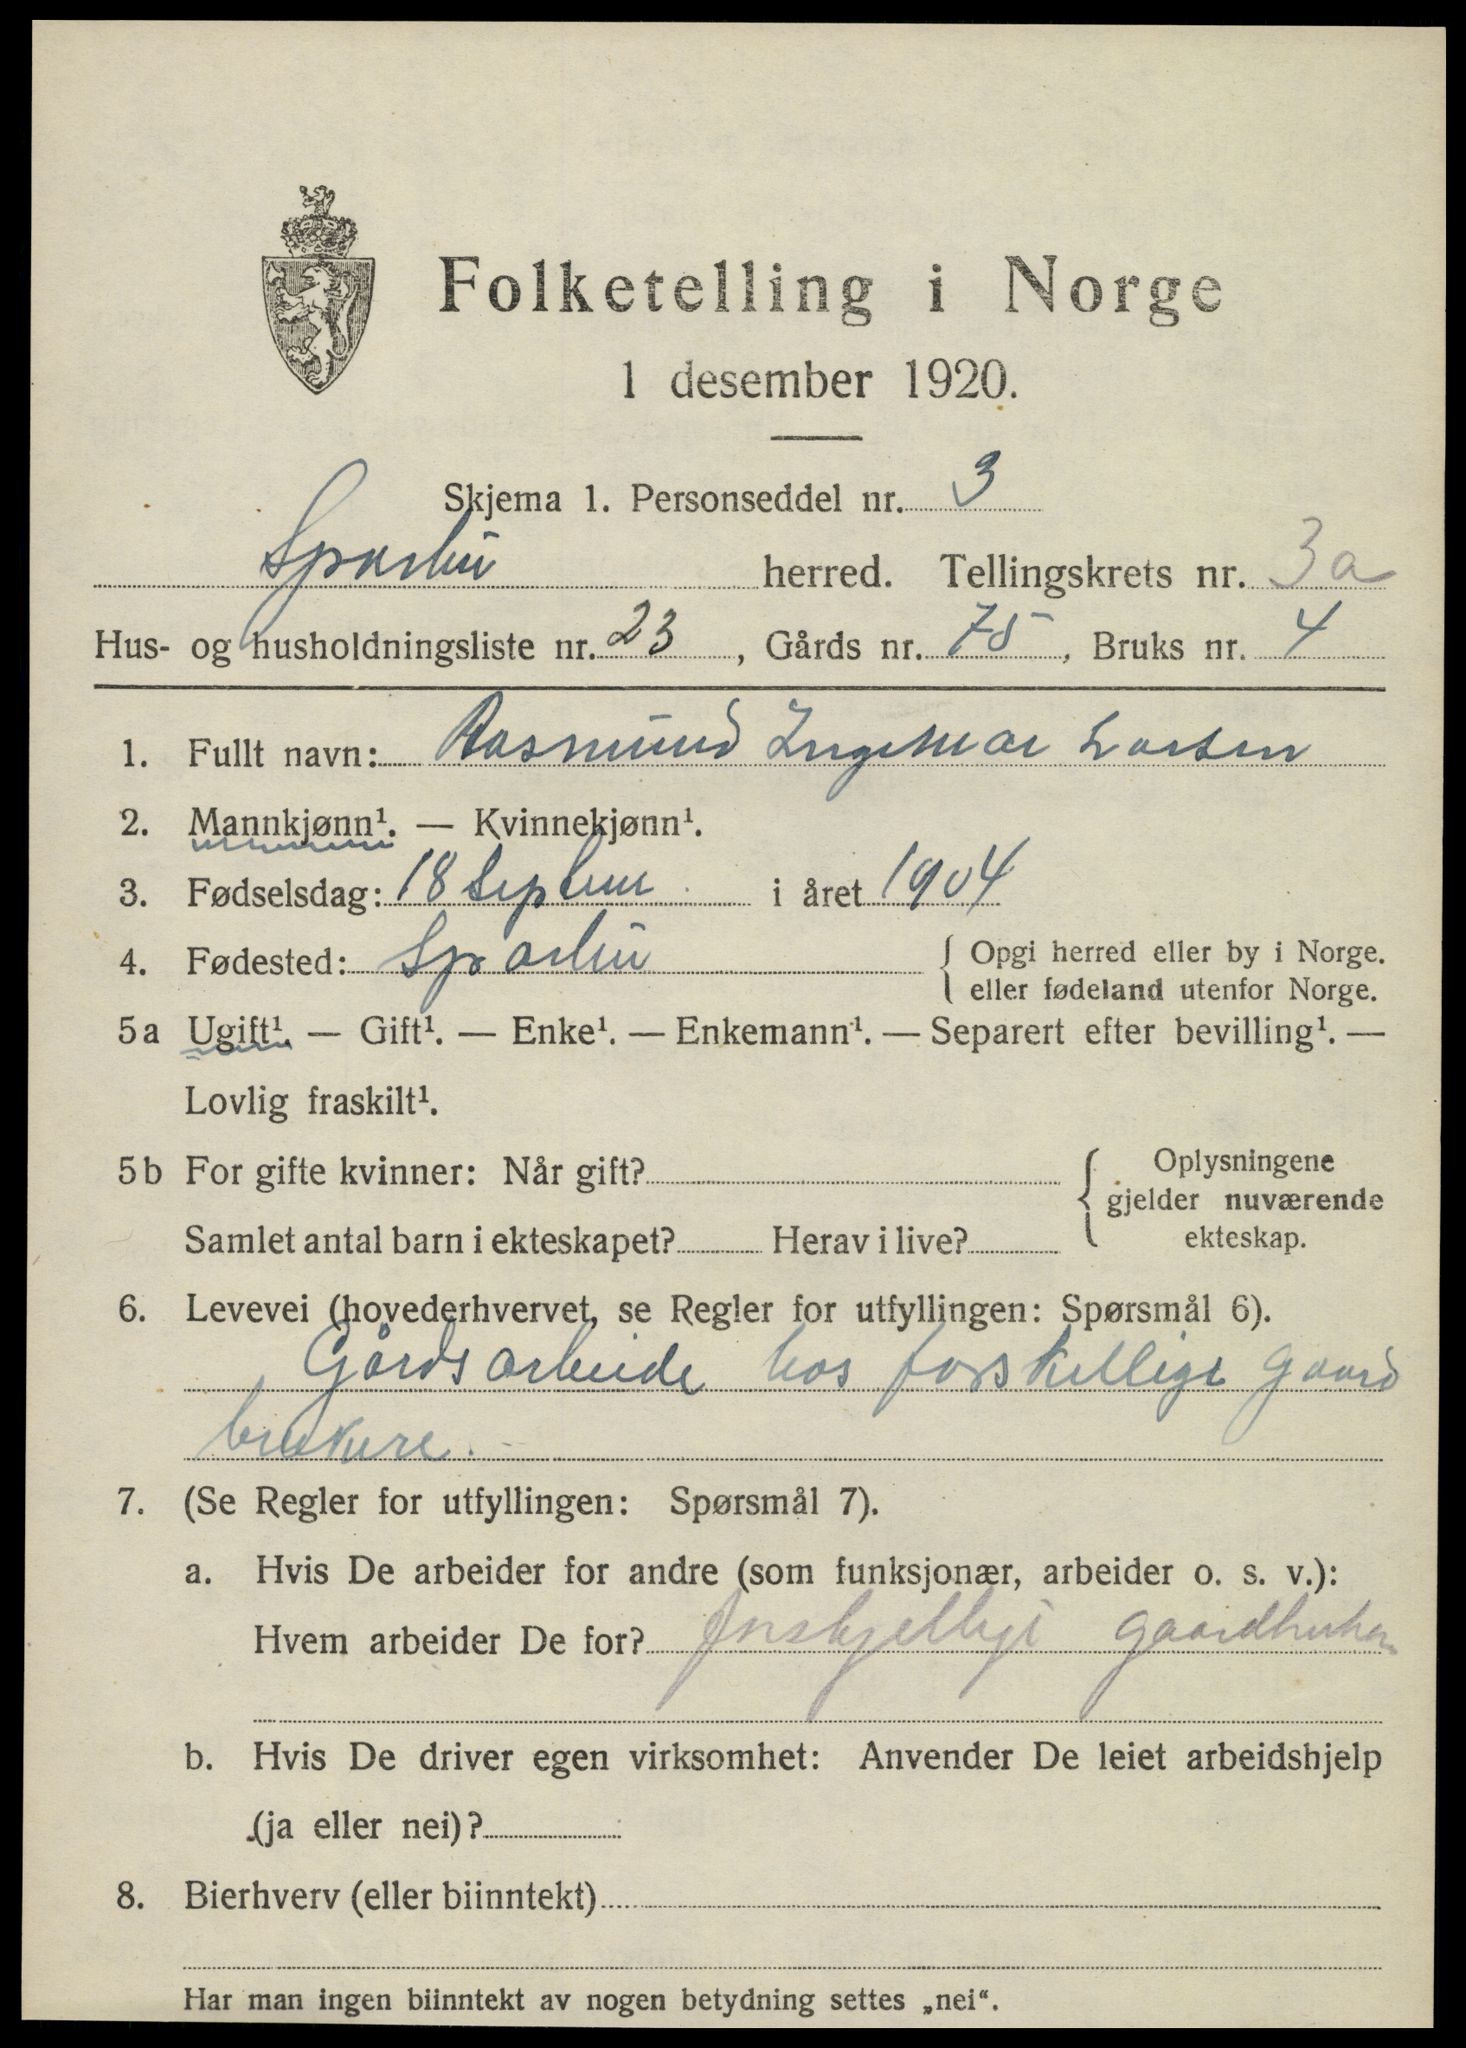 Folketelling i Norge
1 desember 1920.
Skjema 1. Personseddel nr. 3
Sparbu herred. Tellingskrets nr. 3a
Hus- og husholdningsliste nr. 23, Gårds nr. 75, Bruks nr. 4
1. Fullt navn: Rasmund Ingemar Larsen
2. Mannkjønn¹. — Kvinnekjønn¹.
3. Fødselsdag: 18 September i året 1904
4. Fødested: Sparbu { Opgi herred eller by i Norge.
eller fødeland utenfor Norge.
5a Ugift¹. — Gift¹. — Enke¹. — Enkemann¹. — Separert efter bevilling¹. —
Lovlig fraskilt¹.
5b For gifte kvinner: Når gift? { Oplysningene
gjelder nuværende
Samlet antal barn i ekteskapet? Herav i live? ekteskap.
6. Levevei (hovederhvervet, se Regler for utfyllingen: Spørsmål 6).
Gårdsarbeide hos forskellige gaard
brukere.
7. (Se Regler for utfyllingen: Spørsmål 7).
a. Hvis De arbeider for andre (som funksjonær, arbeider o. s. v.):
Hvem arbeider De for? forskjellige
b. Hvis De driver egen virksomhet: Anvender De leiet arbeidshjelp
(ja eller nei)?
8. Bierhverv (eller biinntekt)
Har man ingen biinntekt av nogen betydning settes „nei“.